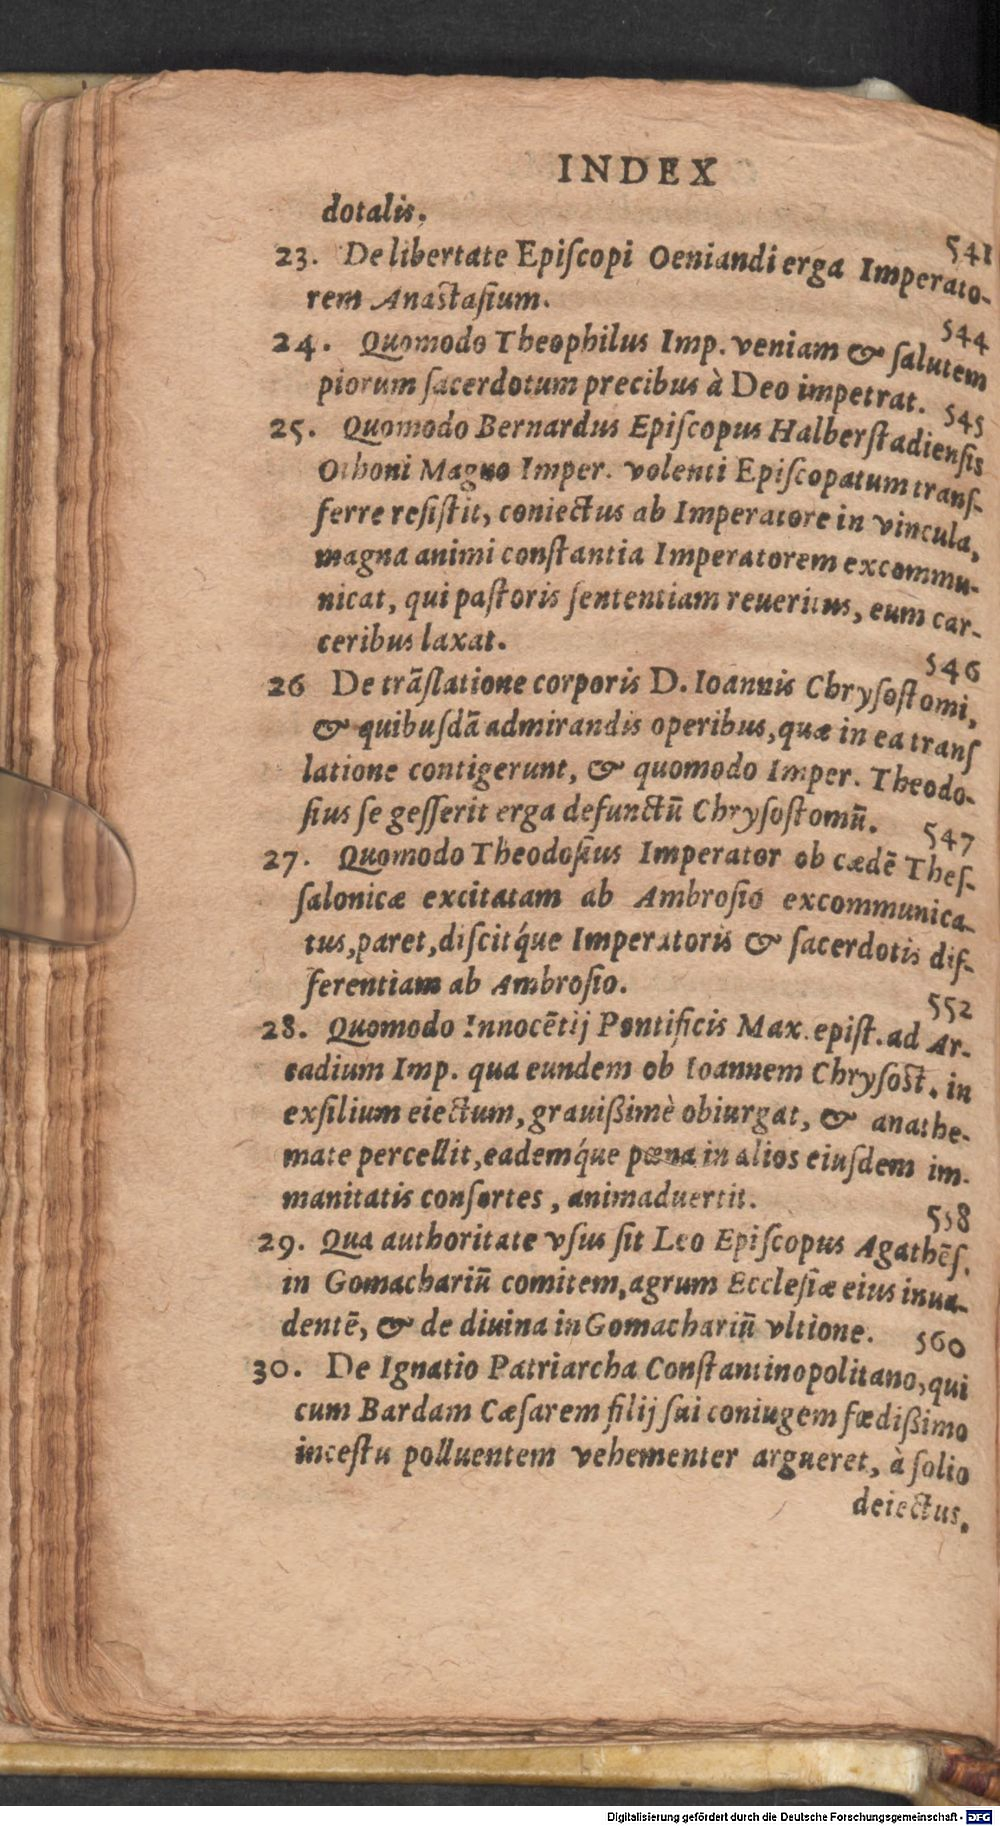 INDEX
dotalis. 541
23. De libertate Episcopi Oeniandi erga Imperato-
rem Anastasium. 544
24. Quomodo Theophilus Imp. veniam & salutem
piorum sacerdotum precibus à Deo impetrat. 545
25. Quomodo Bernardus Episcopus Halberstadiensis
Othoni Magno Imper. volenti Episcopatum trans-
ferre resistit, coniectus ab Imperatore in vincula,
magna animi constantia Imperatorem excommu-
nicat, qui pastoris sententiam reueritus, eum car-
ceribus laxat. 546
26 De trãslatione corporis D. Ioannis Chrysostomi,
& quibusdã admirandis operibus, quæ in ea trans
latione contigerunt, & quomodo Imper. Theodo-
sius se gesserit erga defunctũ Chrysostomũ. 547
27. Quomodo Theodosius Imperator ob cædẽ Thes-
salonicæ excitatam ab Ambrosio excommunica-
tus, paret, discitq́ue Imperatoris & sacerdotis dif-
ferentiam ab Ambrosio. 552
28. Quomodo Innocẽtij Pontificis Max. epist. ad Ar-
cadium Imp. qua eundem ob Ioannem Chrysost. in
exsilium eiectum, grauißimè obiurgat, & anathe-
mate percellit, eademq́ue pœna in alios eiusdem im-
manitatis consortes, animaduertit. 558
29. Qua authoritate vsus sit Leo Episcopus Agathẽs.
in Gomachariũ comitem, agrum Ecclesiæ eius inua-
dentẽ, & de diuina in Gomachariũ vltione. 560
30. De Ignatio Patriarcha Constantinopolitano, qui
cum Bardam Cæsarem filij sui coniugem fœdißimo
incestu polluentem vehementer argueret, à solio
deiectus.
Digitalisierung gefördert durch die Deutsche Forschungsgemeinschaft - DFG